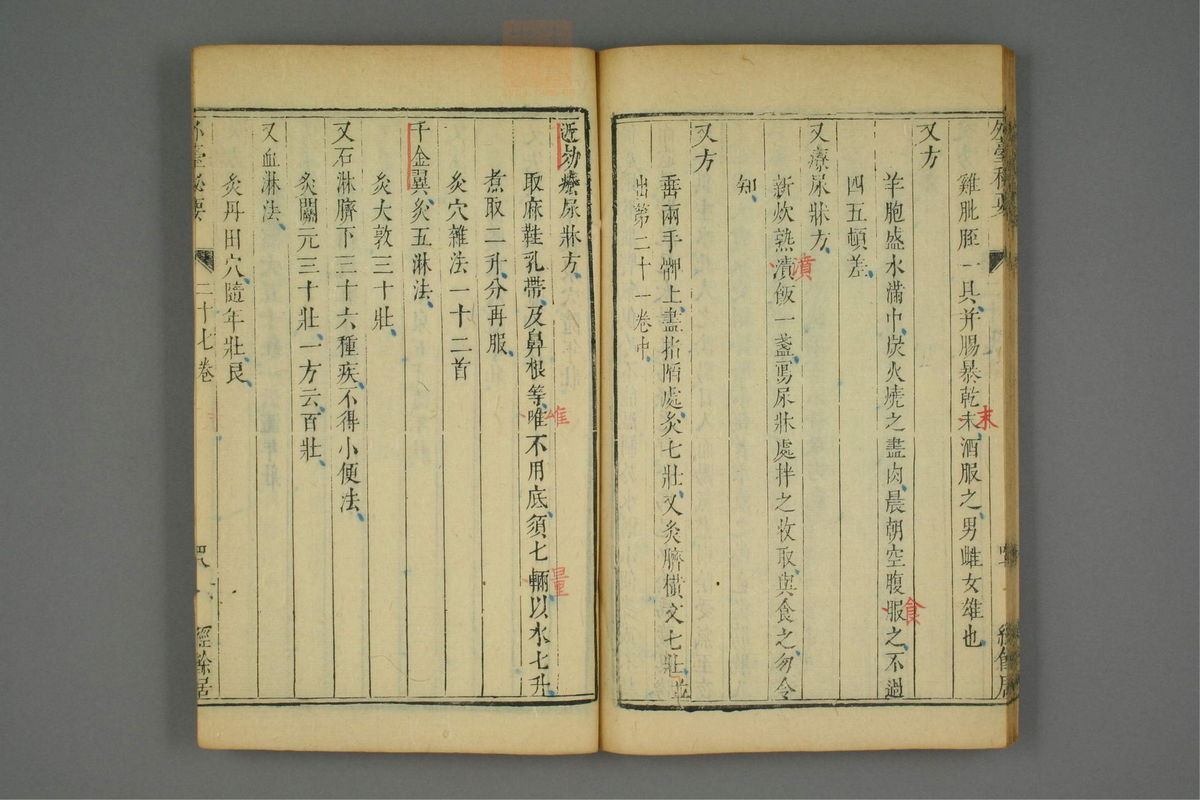 雞肶胵一具并腸暴乾末酒服之男雌女雄也
末
又方
羊胞盛水滿中炭火燒之盡肉晨朝空腹服之不過
食
四五頓差
又療尿牀方
新炊熟漬飯一盞寫尿牀處拌之收取與食之勿令
饋
知
又方
垂兩手髀上盡指陌處灸七壯又灸臍橫文七壯並
出第二十一卷中
近効療尿牀方
取麻鞋乳帶及鼻根等唯不用底須七輛以水七升
維
量
煮取二升分再服
灸穴雜法一十二首
千金翼灸五淋法
灸大敦三十壯
又石淋臍下三十六種疾不得小便法
灸關元三十壯一方云百壯
又血淋法
灸丹田穴隨年壯良
外臺秘要
二十七卷
經餘居